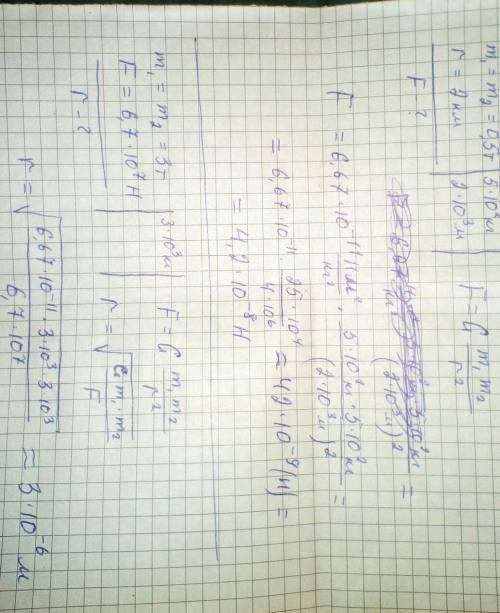 m₁ = m₂ = 0,5т | 5·10² кг
r = 2 км | 2·10³ м
F – ?
F = G m₁m₂/r²
F = 6,67·10⁻¹¹ · 5·10² кг · 5·10² кг / (2·10³ м)² =
= 6,67·10⁻¹¹ · 25·10⁴ / 4·10⁶ ≈ 42·10⁻⁹ (Н) =
= 4,2·10⁻⁸ Н
m₁ = m₂ = 3т | 3·10³ м
F = 6,7·10⁷ Н
r – ?
F = G m₁m₂/r²
r = √(G m₁·m₂/F)
r = √(6,67·10⁻¹¹·3·10³·3·10³ / 6,7·10⁷) ≈ 3·10⁻⁶ м